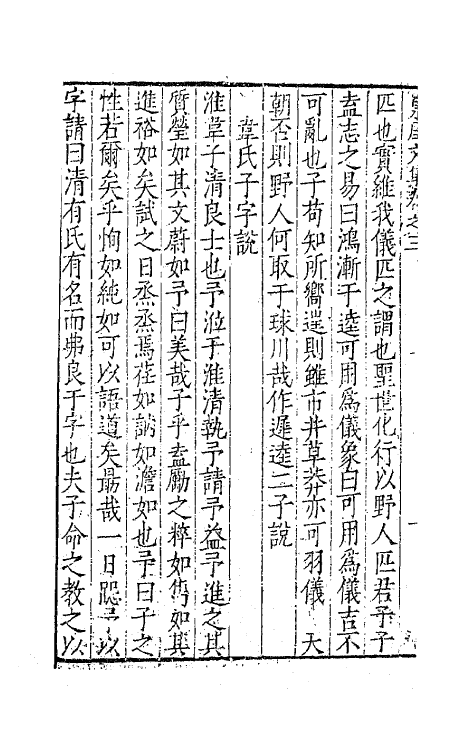 匹也實維我儀匹之謂也聖世化行以野人匹若乎子
盍志之易曰鴻漸于逵可用為儀象曰可用為儀吉不
可亂也子苟知所嚮逵則雖市井草莽亦可羽儀　大
朝否則野人何取于球川哉作遲逵二子說
韋氏子字說
淮韋子清良士也予涖于淮清執予請予益予進之其
質瑩如其文蔚如予曰美哉子乎盍勵之粹如雋如其
進裕如矣試之日烝烝焉莊如訥如澹如也予曰子之
性若爾矣乎恂如純如可以語道矣勗哉一日跽予以
字請曰清有氏有名而弗良于字也夫子命之教之以